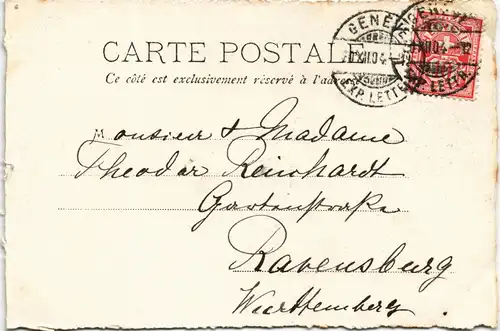 CARTE POSTALE
Ce côté est exclusivement réservé à l'adresse
GENÈVE
XII.04
EXP. LETTR.
GENÈVE
XII.04
LETTR.
Monsieur & Madame
Theodor Reinhardt
Gartenstrasse
Ravensburg
Wurttemberg